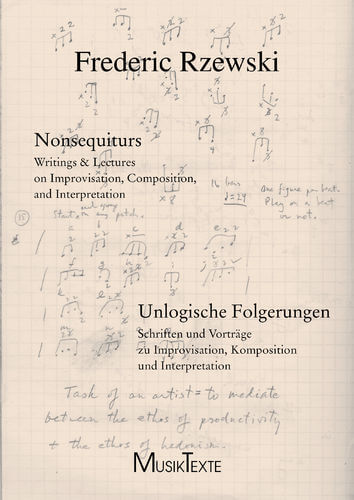 Frederic Rzewski
Nonsequiturs
Writings & Lectures
on Improvisation, Composition,
and Interpretation
16 bars
♩=24
One figure per beat.
Play on a beat
or not.
15
Start on any pitch.
a b c d e
f g h i j
k l
Unlogische Folgerungen
Schriften und Vorträge
zu Improvisation, Komposition
und Interpretation
Task of an artist = to mediate
between the ethos of productivity
+ the ethos of hedonism.
MUSIKTEXTE